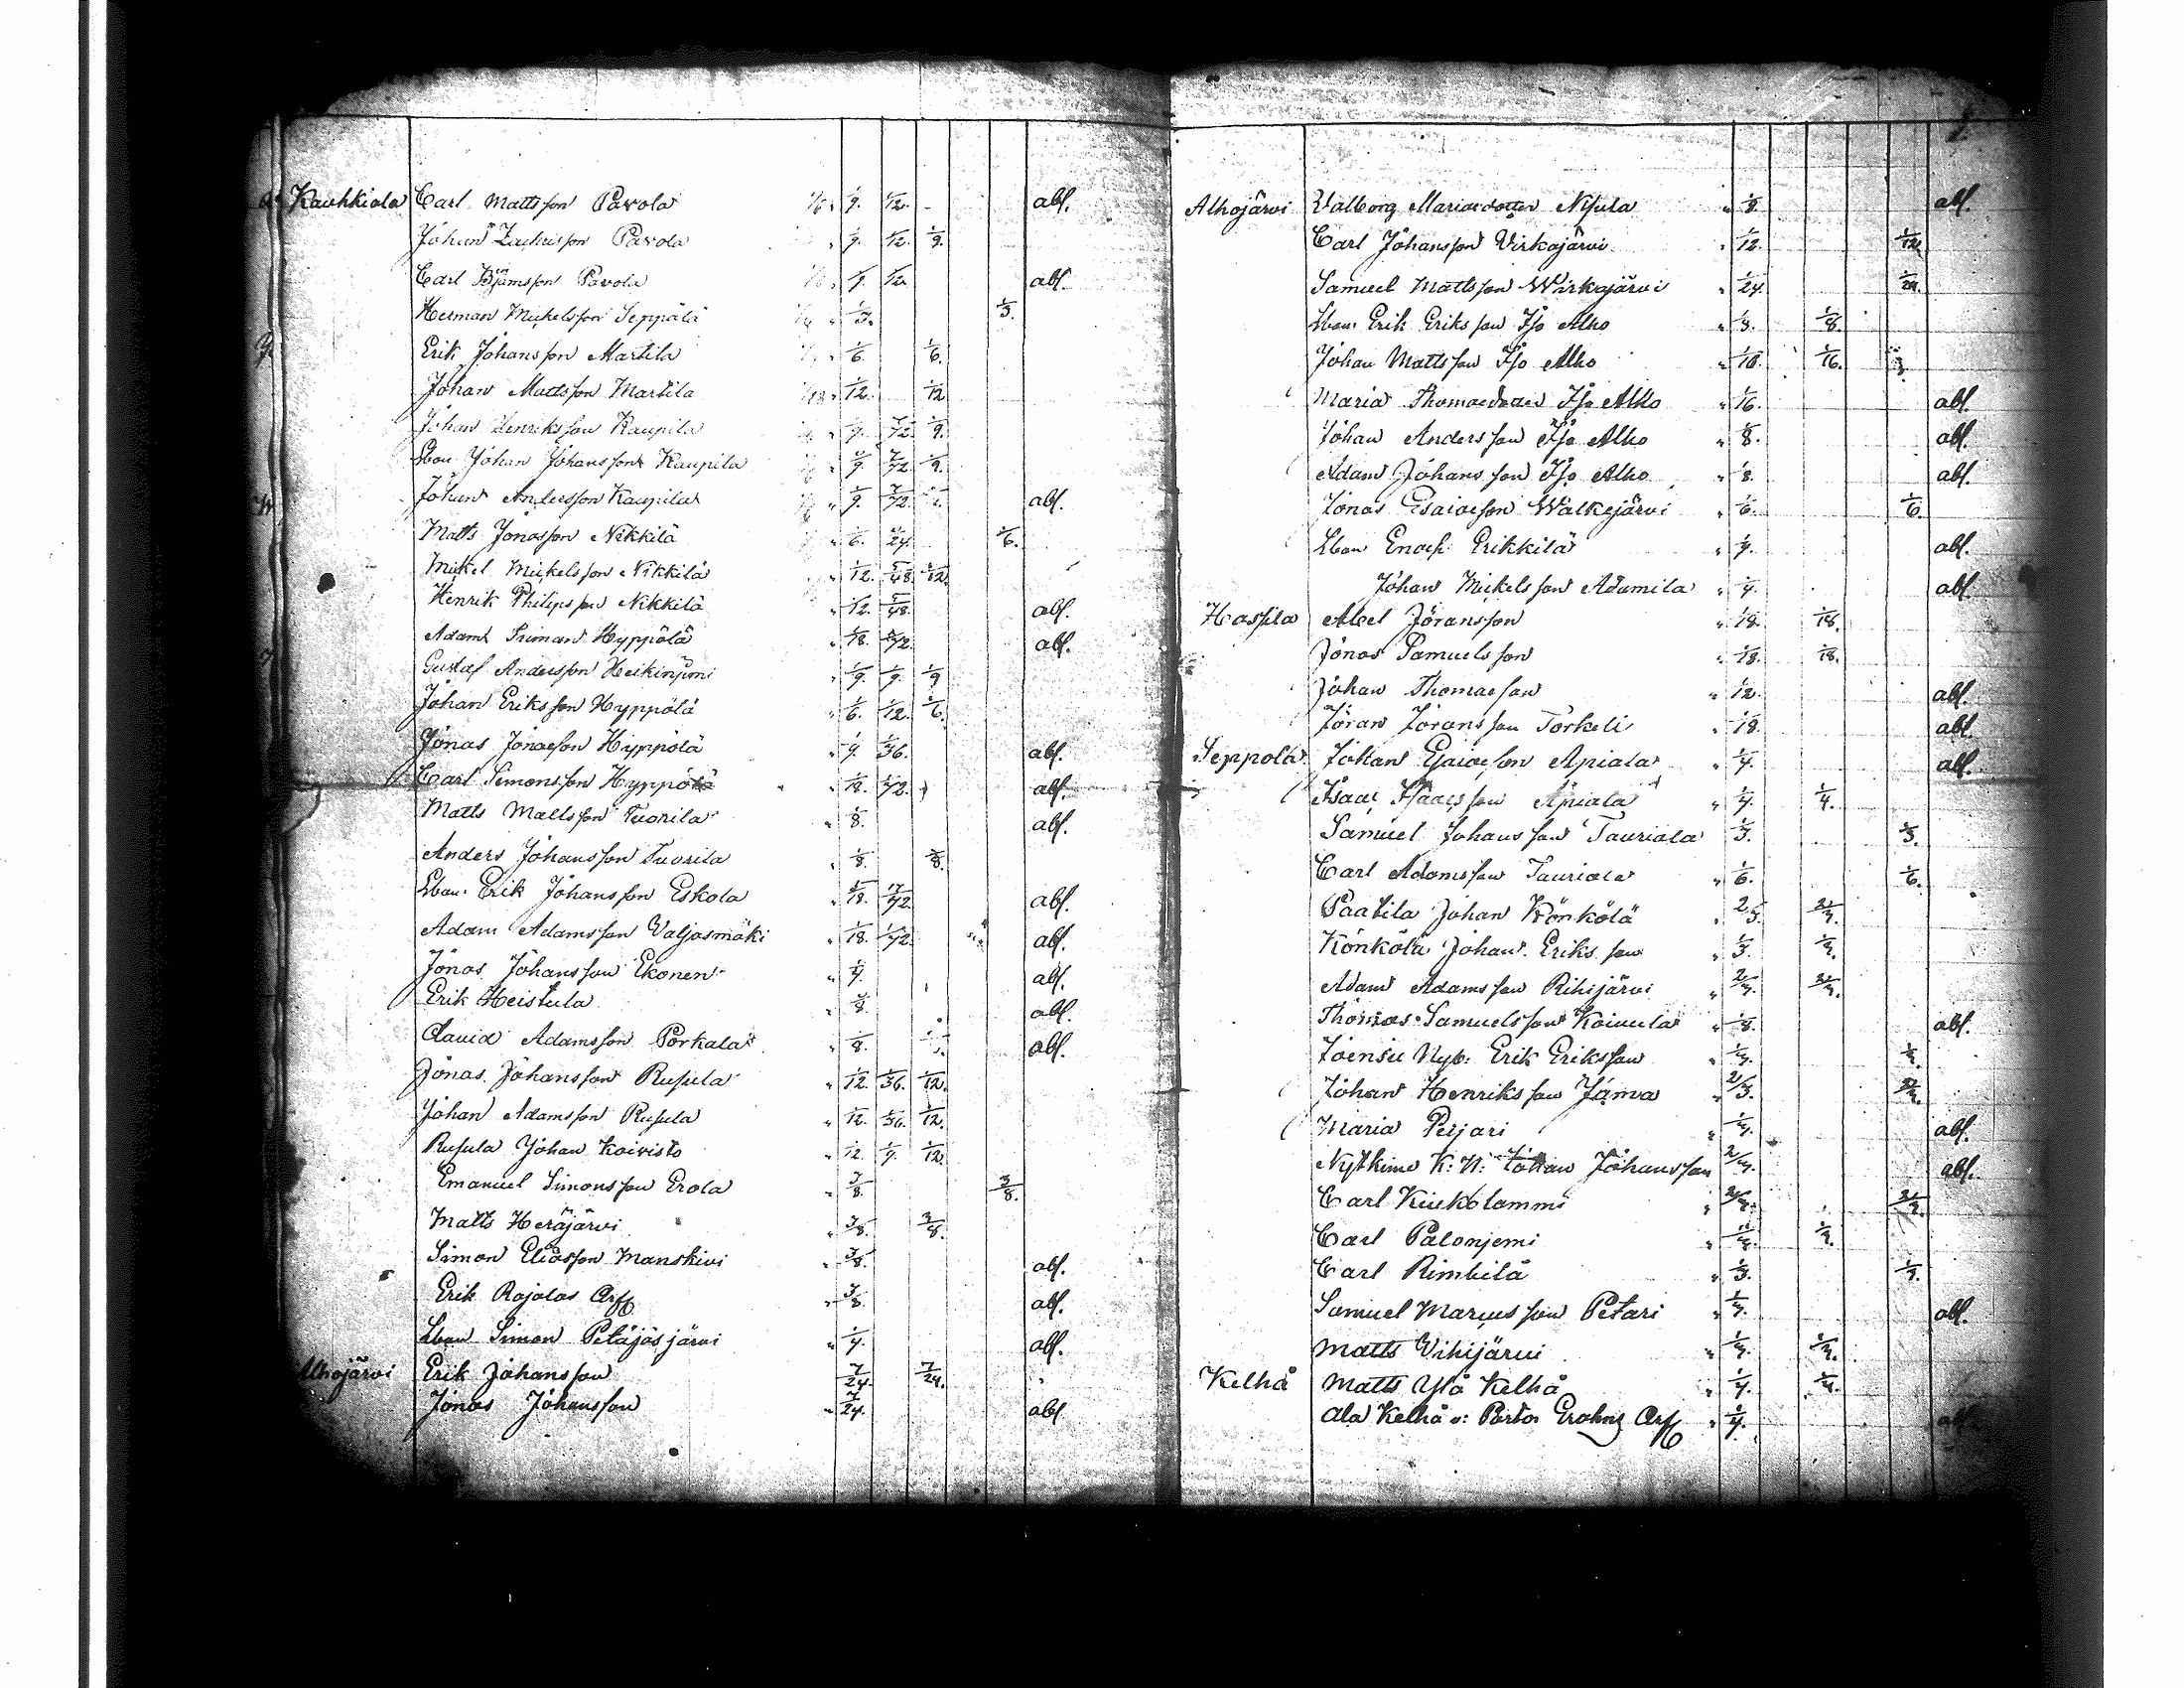 Kauhkiala Carl Mattsson Pavola 1/9. 1/12. abs.
Johan Zachrisson Pavola 1/9. 1/12. 1/9.
Carl Bjämsson Pavola 1/9. 1/12 abs.
Herman Mickelsson Seppälä 1/3. 1/3.
Erik Johansson Martila 1/6. 1/6.
Johan Mattsson Martila 1/12. 1/12
Johan Henriksson Kaupila 1/9. 7/72. 1/9.
Lbon Johan Johansson Kaupila 1/9. 7/72. 1/9.
Johan Andersson Kaupila 1/9. 7/72. abs.
Matts Jonasson Nikkilä 1/6. 5/24. 1/6.
Mickel Mickelsson Nikkilä 1/12. 5/48. 1/12.
Henrik Philipsson Nikkilä 1/12. 5/48. abs.
Adam Hyppölä 1/18. abs.
Gustaf Andersson Heikinjoni 1/9. 1/9. 1/9
Johan Eriksson Hyppölä 1/6. 1/12. 1/6.
Jonas Jonasson Hyppölä 1/9. 1/36. abs.
Carl Simonsson Hyppölä 1/18. 1/72. abs.
Matts Mattsson Tuorila 1/8. abs.
Anders Johansson Tuorila 1/8. 1/8.
Lbon. Erik Johansson Eskola abs.
Adam Adamsson Valjasmäki 1/18. 1/72. abs.
Jonas Johansson Ekonen 1/4. abs.
Erik Heistula abs.
David Adamsson Porkala 1/8. abs.
Jonas Johansson Rusula 1/12. 1/36. 1/12.
Johan Adamsson Rusula 1/12. 1/36. 1/12.
Rusula Johan Koivisto 1/12. 1/9. 1/12.
Emanuel Simonsson Erola 3/8. 3/8.
Matts Heräjärvi 3/8. 3/8.
Simon Eliasson Manskivi 3/8. abs.
Erik Rajalas Arf 3/8. abs.
Lbon Simon Petäjäsjärvi 1/4. abs.
Alhojärvi Erik Johansson 7/24. 7/24.
Jonas Johansson 7/24. abs
Alhojärvi Valborg Mariasdotter Nisula 1/8. abs.
Carl Johansson Virkajärvi 1/12. 1/12.
Samuel Mattsson Wirkajärvi 1/24. 1/24.
Lbon. Erik Eriksson Iso Alho 1/8. 1/8.
Johan Mattsson Iso Alho 1/16. 1/16.
Maria Thomasdotter Iso Alho 1/16. abs.
Johan Andersson Iso Alho 1/8. abs.
Adam Johansson Iso Alho 1/8. abs.
Jonas Esaiasson Walkejärvi 1/6. 1/6.
Lbon Enoch Erikkilä 1/4. abs.
Johan Mickelsson Adamila 1/4. abs.
Haspila Abel Jöransson 1/18. 1/18.
Jonas Samuelsson 1/18. 1/18.
Johan Thomasson 1/12. abs.
Jöran Jöransson Torkeli 1/18. abs.
Seppola Johan Esaiasson Apiala 1/4. abs.
Isaac Isaacsson Apiala 1/4. 1/4.
Samuel Johansson Tauriala 1/3. 1/3.
Carl Adamsson Tauriala 1/6. 1/6.
Paatila Johan Könkölä
Könkölä Johan Eriksson
Adam Adamsson Rihijärvi
Thomas Samuelsson Koivula 1/8. abs.
Joensu Nyb. Erik Eriksson
Johan Henriksson Jämsä
Maria Perjari abs.
Nytkime K: N: Johan Johansson abs.
Carl Kiukolammi
Carl Palonjemi
Carl Rimbilä
Samuel Marcusson Petari abs.
Matts Vihijärvi
Kelhä Matts Ylä Kelhä 1/4. 1/4.
Ala Kelhä Arf 1/4. abs